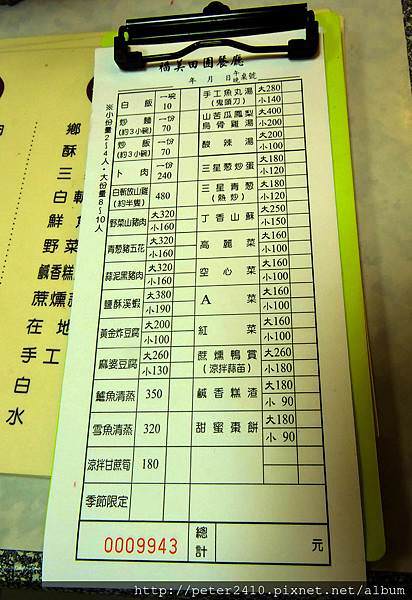 福美田園餐廳
年 月 日 午 晚 桌號
※小份量2~4人，大份量8~10人
白飯 一碗 10
炒麵 (約3小碗) 一份 70
炒飯 (約3小碗) 一份 70
卜肉 一份 240
白斬放山雞 (約半隻) 480
野菜山豬肉 大320 小160
青葱豬五花 大320 小160
蒜泥黑豬肉 大320 小160
鹽酥溪蝦 大380 小190
黃金炸豆腐 大200 小100
麻婆豆腐 大260 小130
鱸魚清蒸 350
雪魚清蒸 320
涼拌甘蔗筍 180
季節限定
手工魚丸湯 (鬼頭刀) 大280 小140
山苦瓜鳳梨烏骨雞湯 大400 小200
酸辣湯 大200 小100
三星葱炒蛋 大180 小120
三星青葱 (熱炒) 大180 小120
丁香山蘇 大250 小150
高麗菜 大160 小100
空心菜 大160 小100
A菜 大160 小100
紅菜 大160 小100
蔗燻鴨賞 (涼拌蒜苗) 大260 小180
鹹香糕渣 大180 小 90
甜蜜棗餅 大180 小 90
0009943
總計 元
鄉
酥
三
白斬
鮮魚
野菜
鹹香糕
蔗燻
在地
手工
白
水
http://peter2410.pixnet.net/album